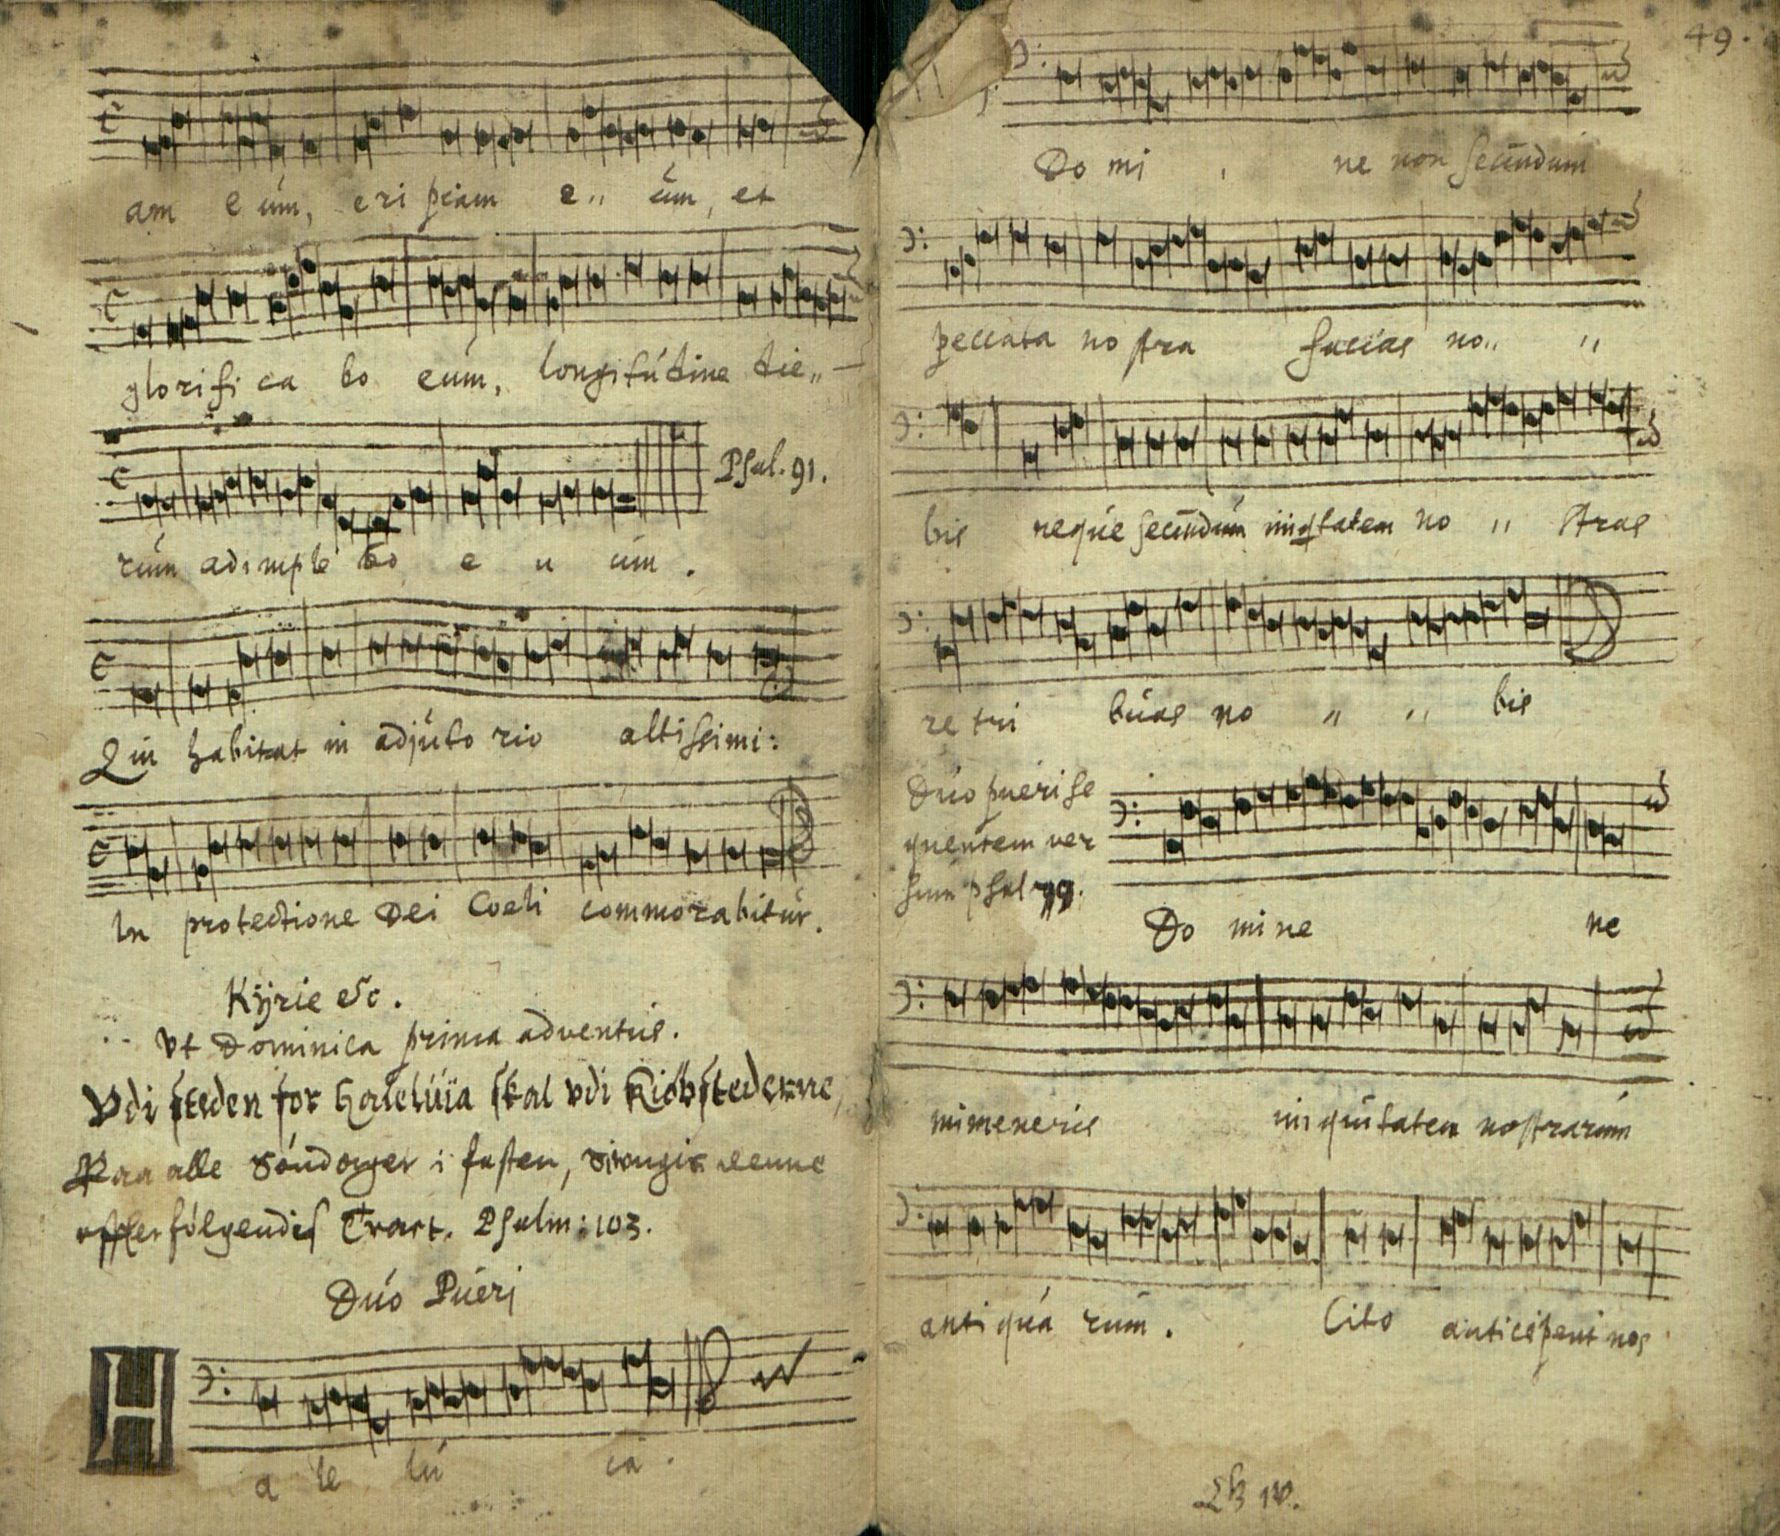 am eúm, eripiam e,, úm, et
glorifica bo eúm, longitúdine die,,
Psal. 91.
rúm adimple bo e u úm.
Qui habitat in adjúto rio altissimi:
In protectione Dei Coeli commorabitúr.
Kÿrie etc.
Vt Dominica prima adventus.
Vdi steden for Haleluia skal vdi Kiöbstederne,
Paa alle Söndager i fasten, siungis denne
effterfölgendis Tract. Psalm: 103.
Dúo Púeri
H
a le lú ia.
49.
Do mi , ne non secundum
peccata nostra facias no,, ,,
bis neqúe secúndúm iniqtatem no ,, stras
re tri búas no ,, ,, bis
Dúo púeri se
quentem ver
sum psal 79.
Do mi ne ne
mimeneris iniqúitatem nostrarúm
antiqúa rúm. Cito anticipent nos